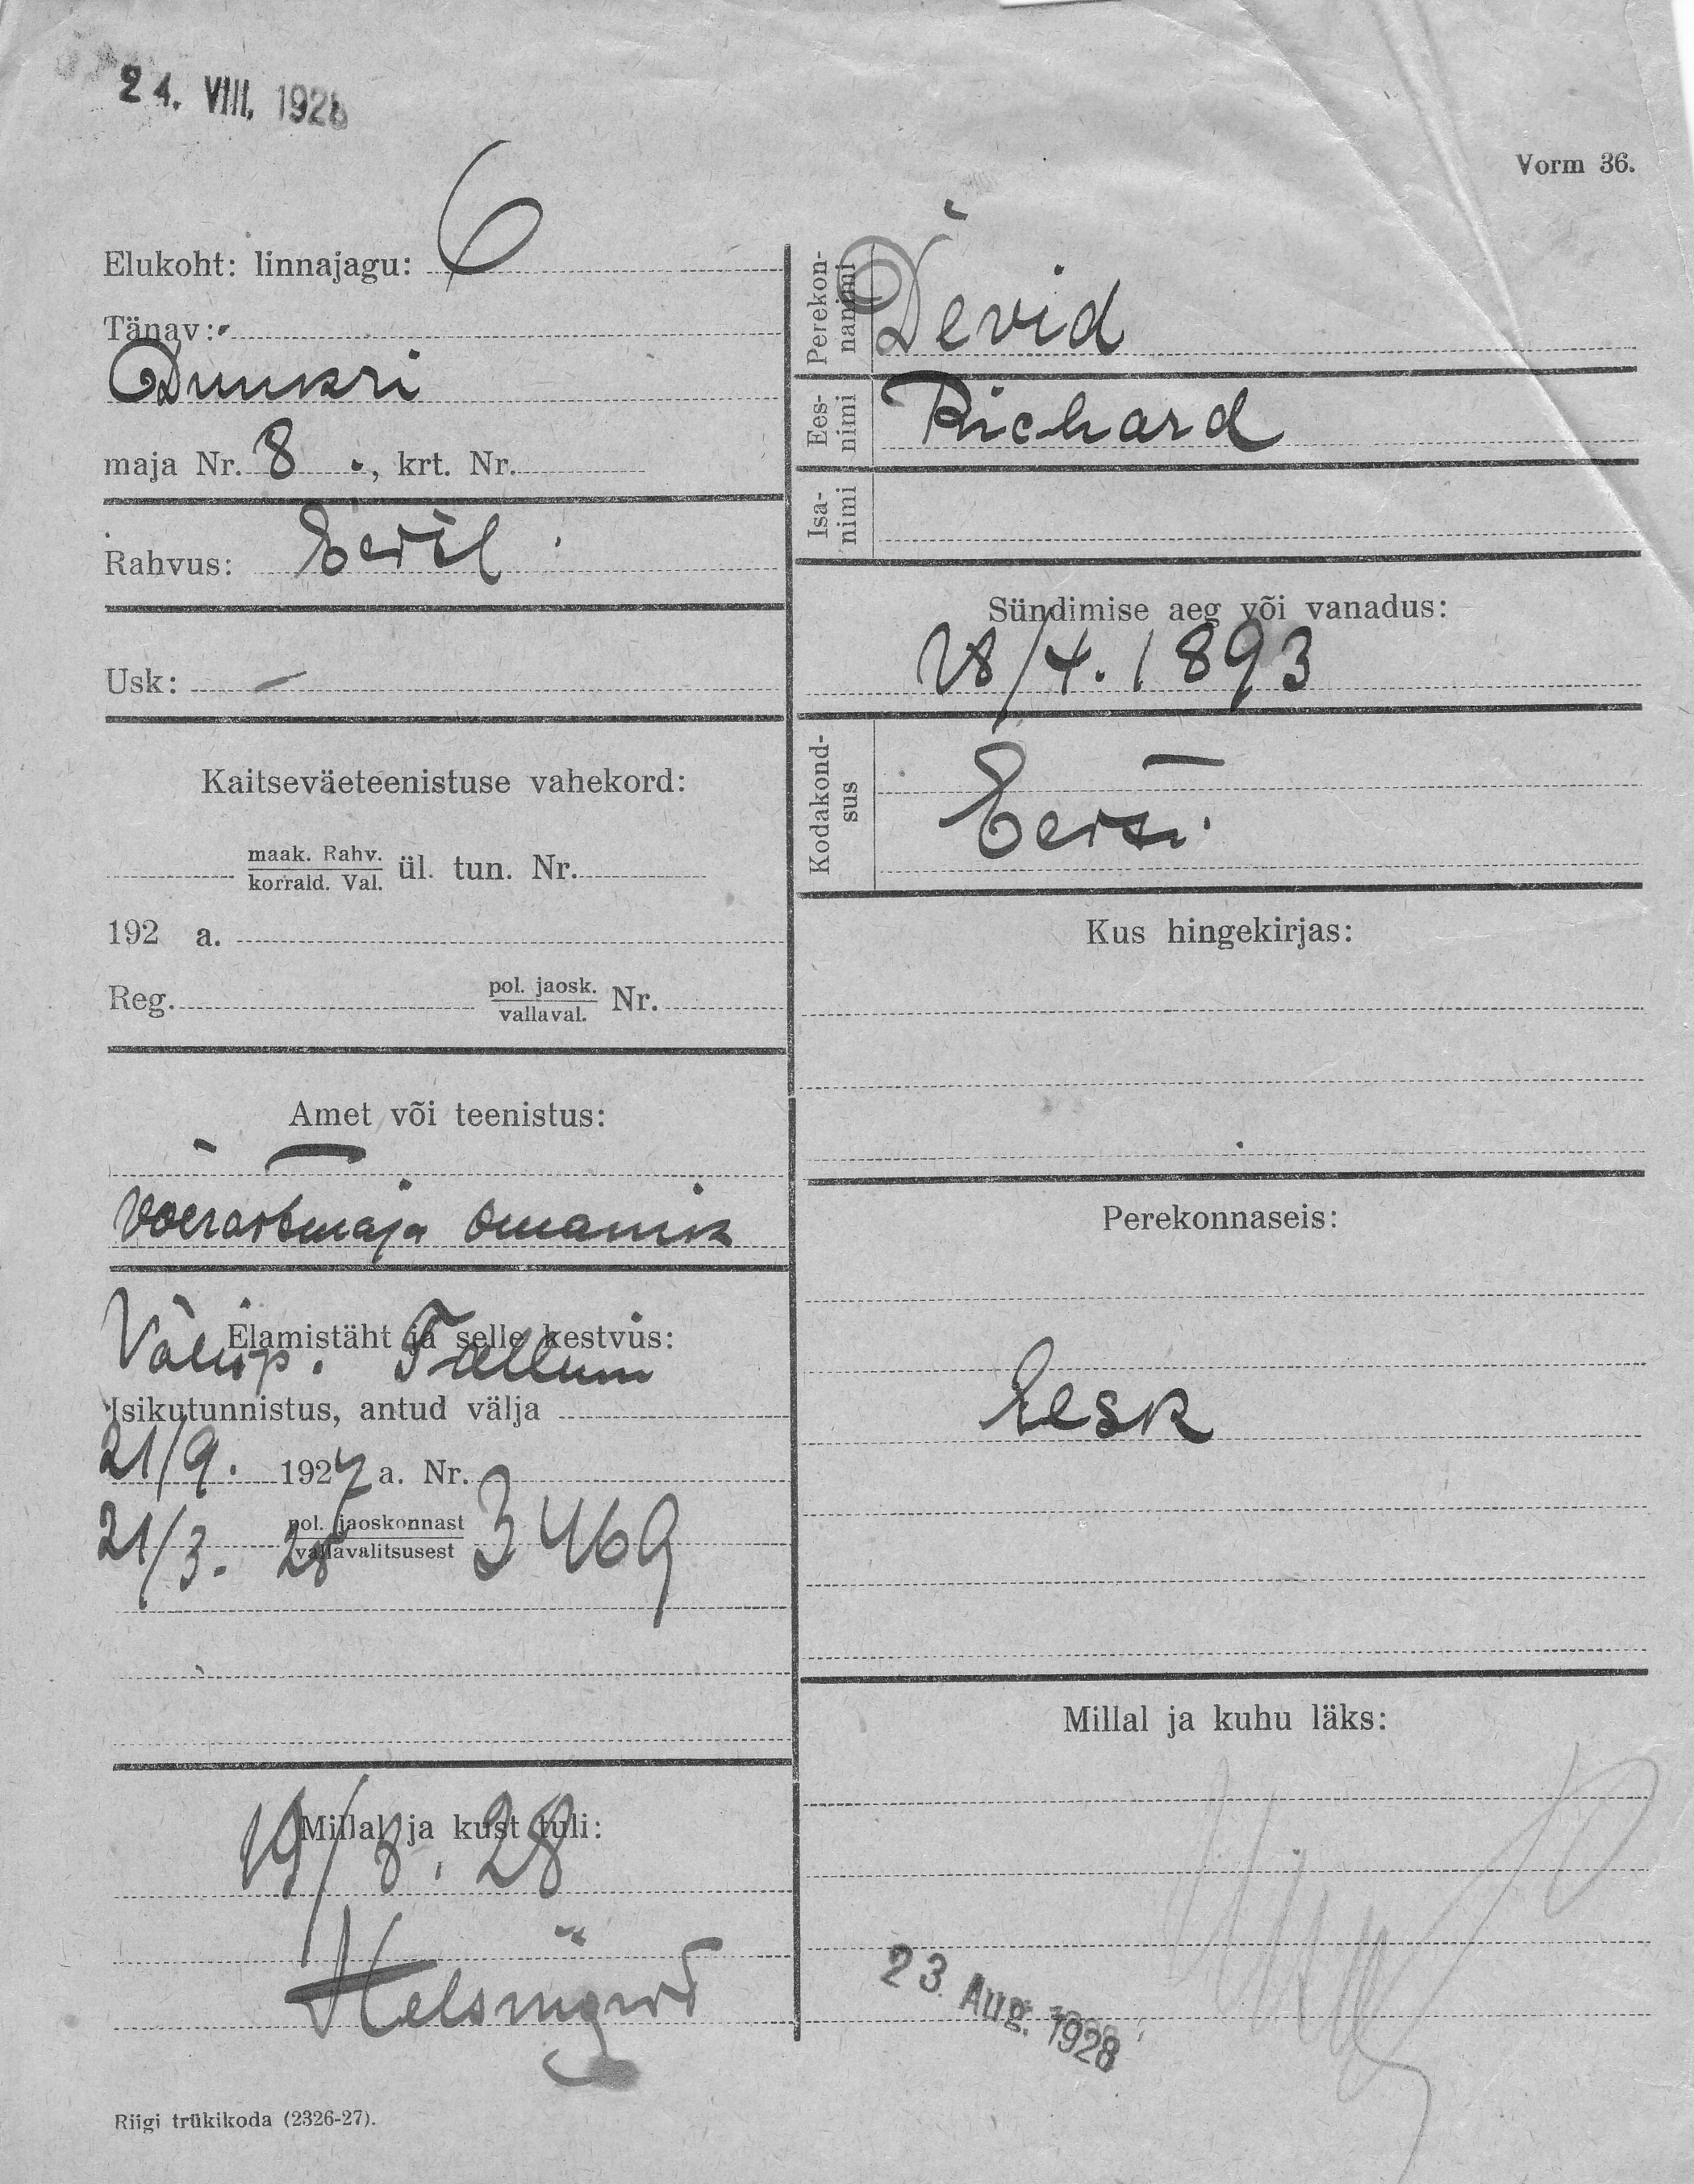 24. VIII, 1928
Vorm 36.
Elukoht: linnajagu: 6
Tänav:
Dunkri
maja Nr. 8 , krt. Nr.
Rahvus: Eestl.
Usk: —
Kaitseväeteenistuse vahekord:
maak. Rahv.
korrald. Val. ül. tun. Nr.
192 a.
Reg. pol. jaosk.
vallaval. Nr.
Amet või teenistus:
Võerastmaja omanik
Elamistäht ja selle kestvus:
Välisp. Tallinn
Isikutunnistus, antud välja
21/9. 1927 a. Nr.
21/3. 28 pol. jaoskonnast
vallavalitsusest 3469
Millal ja kust tuli:
19/8. 28
Helsingist
Riigi trükikoda (2326-27).
Perekon-
nanimi Devid
Ees-
nimi Richard
Isa-
nimi
Sündimise aeg või vanadus:
28/4. 1893
Kodakond-
sus Eesti
Kus hingekirjas:
Perekonnaseis:
Lesk
Millal ja kuhu läks:
23. Aug. 1928